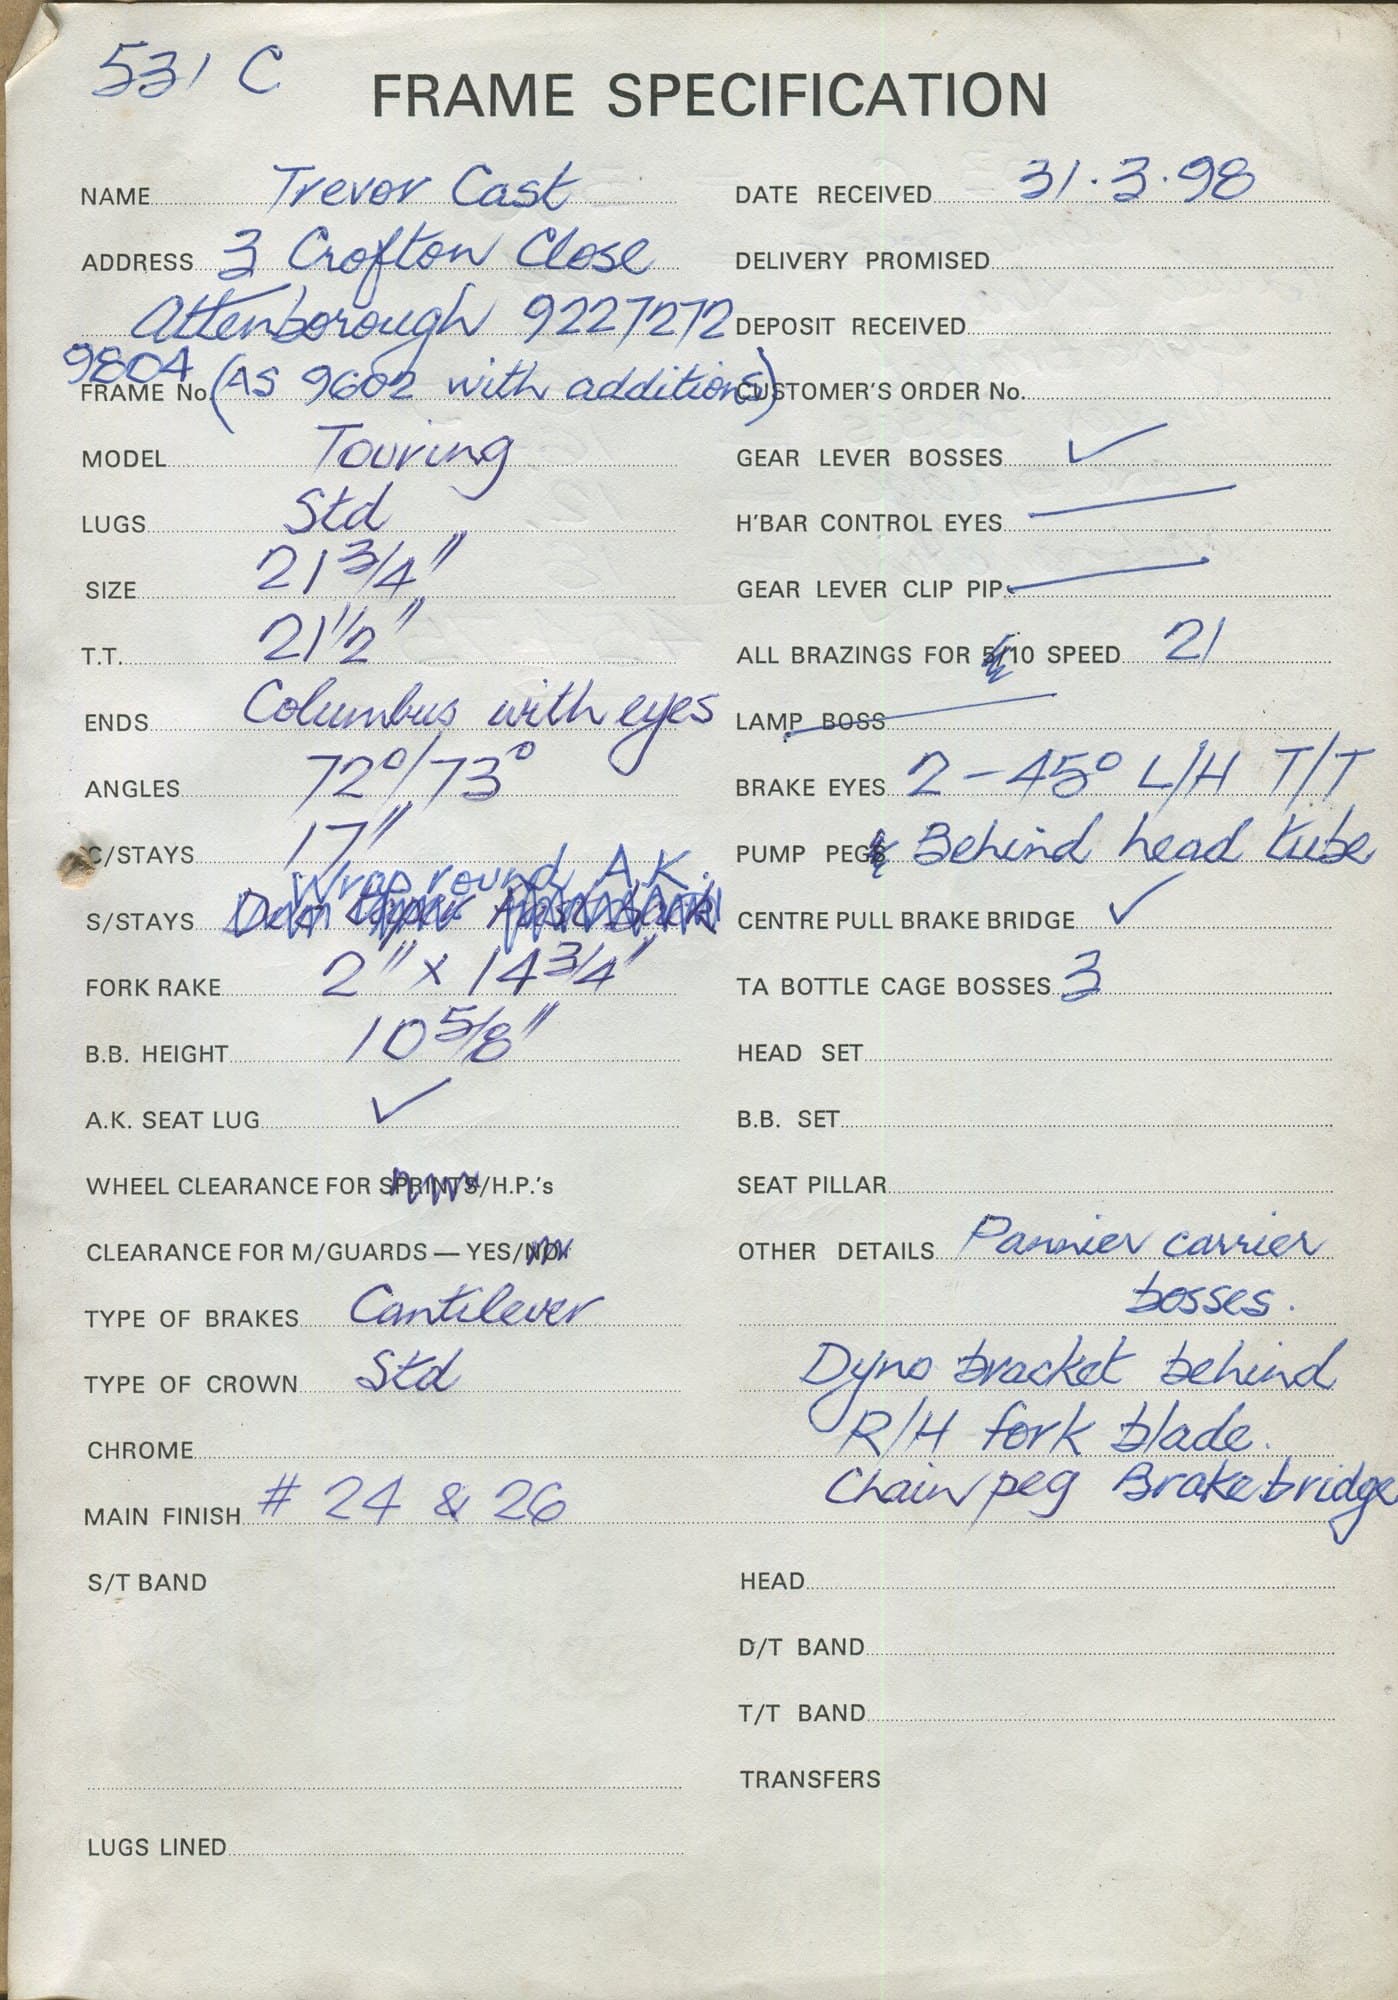 531 C
FRAME SPECIFICATION
NAME Trevor Cast
ADDRESS 3 Crofton Close
Attenborough 9227272
9804
FRAME No. (AS 9602 with additions)
MODEL Touring
LUGS Std
SIZE 21 3/4"
T.T. 21 1/2"
ENDS Columbus with eyes
ANGLES 72°/73°
C/STAYS 17"
Wrap round A.K.
S/STAYS
FORK RAKE 2" x 14 3/4"
B.B. HEIGHT 10 5/8"
A.K. SEAT LUG ✓
WHEEL CLEARANCE FOR SPRINTS/H.P.'s
CLEARANCE FOR M/GUARDS — YES/NO
TYPE OF BRAKES Cantilever
TYPE OF CROWN Std
CHROME
MAIN FINISH # 24 & 26
S/T BAND
LUGS LINED
DATE RECEIVED 31.3.98
DELIVERY PROMISED
DEPOSIT RECEIVED
CUSTOMER'S ORDER No.
GEAR LEVER BOSSES ✓
H'BAR CONTROL EYES —
GEAR LEVER CLIP PIP —
ALL BRAZINGS FOR 5/10 SPEED 21
LAMP BOSS
BRAKE EYES 2 - 45° L/H T/T
PUMP PEGS Behind head tube
CENTRE PULL BRAKE BRIDGE ✓
TA BOTTLE CAGE BOSSES 3
HEAD SET
B.B. SET
SEAT PILLAR
OTHER DETAILS Pannier carrier
bosses.
Dyno bracket behind
R/H fork blade.
Chain peg Brake bridge
HEAD
D/T BAND
T/T BAND
TRANSFERS